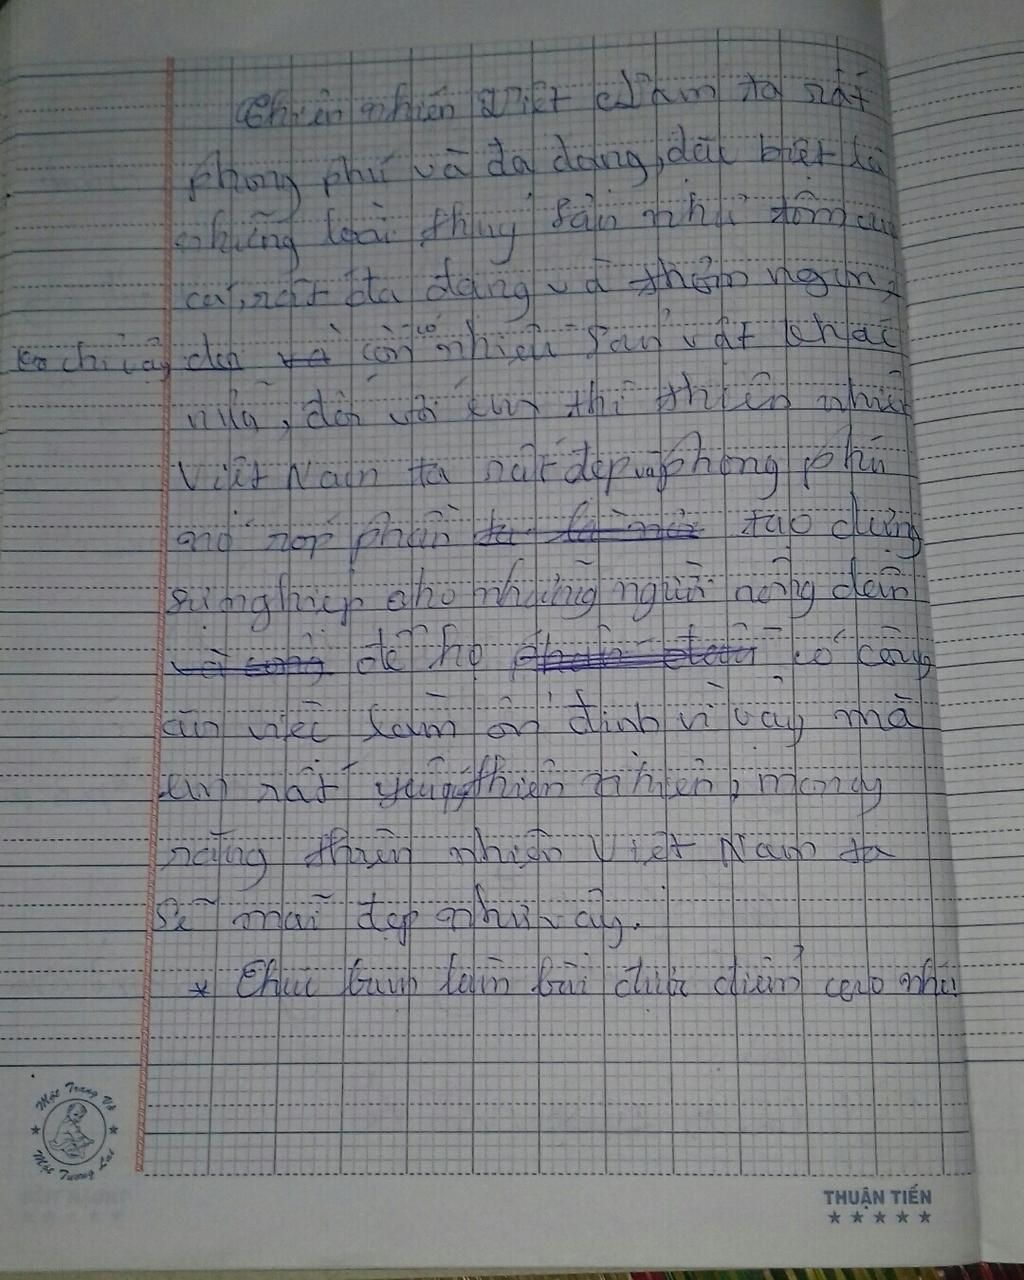 Thiên nhiên Việt Nam ta rất
phong phú và đa dạng, đặc biệt là
những loài thủy sản như tôm, cua
cá, rất đa dạng và thơm ngon,
ko chỉ vậy đâu còn có nhiều sản vật khác
nữa, đối với em thì thiên nhiên
Việt Nam ta rất đẹp và phong phú
góp phần tạo dựng
sự nghiệp cho những người nông dân
để họ có công
ăn việc làm ổn định vì vậy mà
em rất yêu quý thiên nhiên, mong
rằng thiên nhiên Việt Nam ta
sẽ mãi đẹp như vậy.
* Chúc bạn làm bài được điểm cao nhé!
Một Trang Vở
Một Tương Lai
THUẬN TIẾN